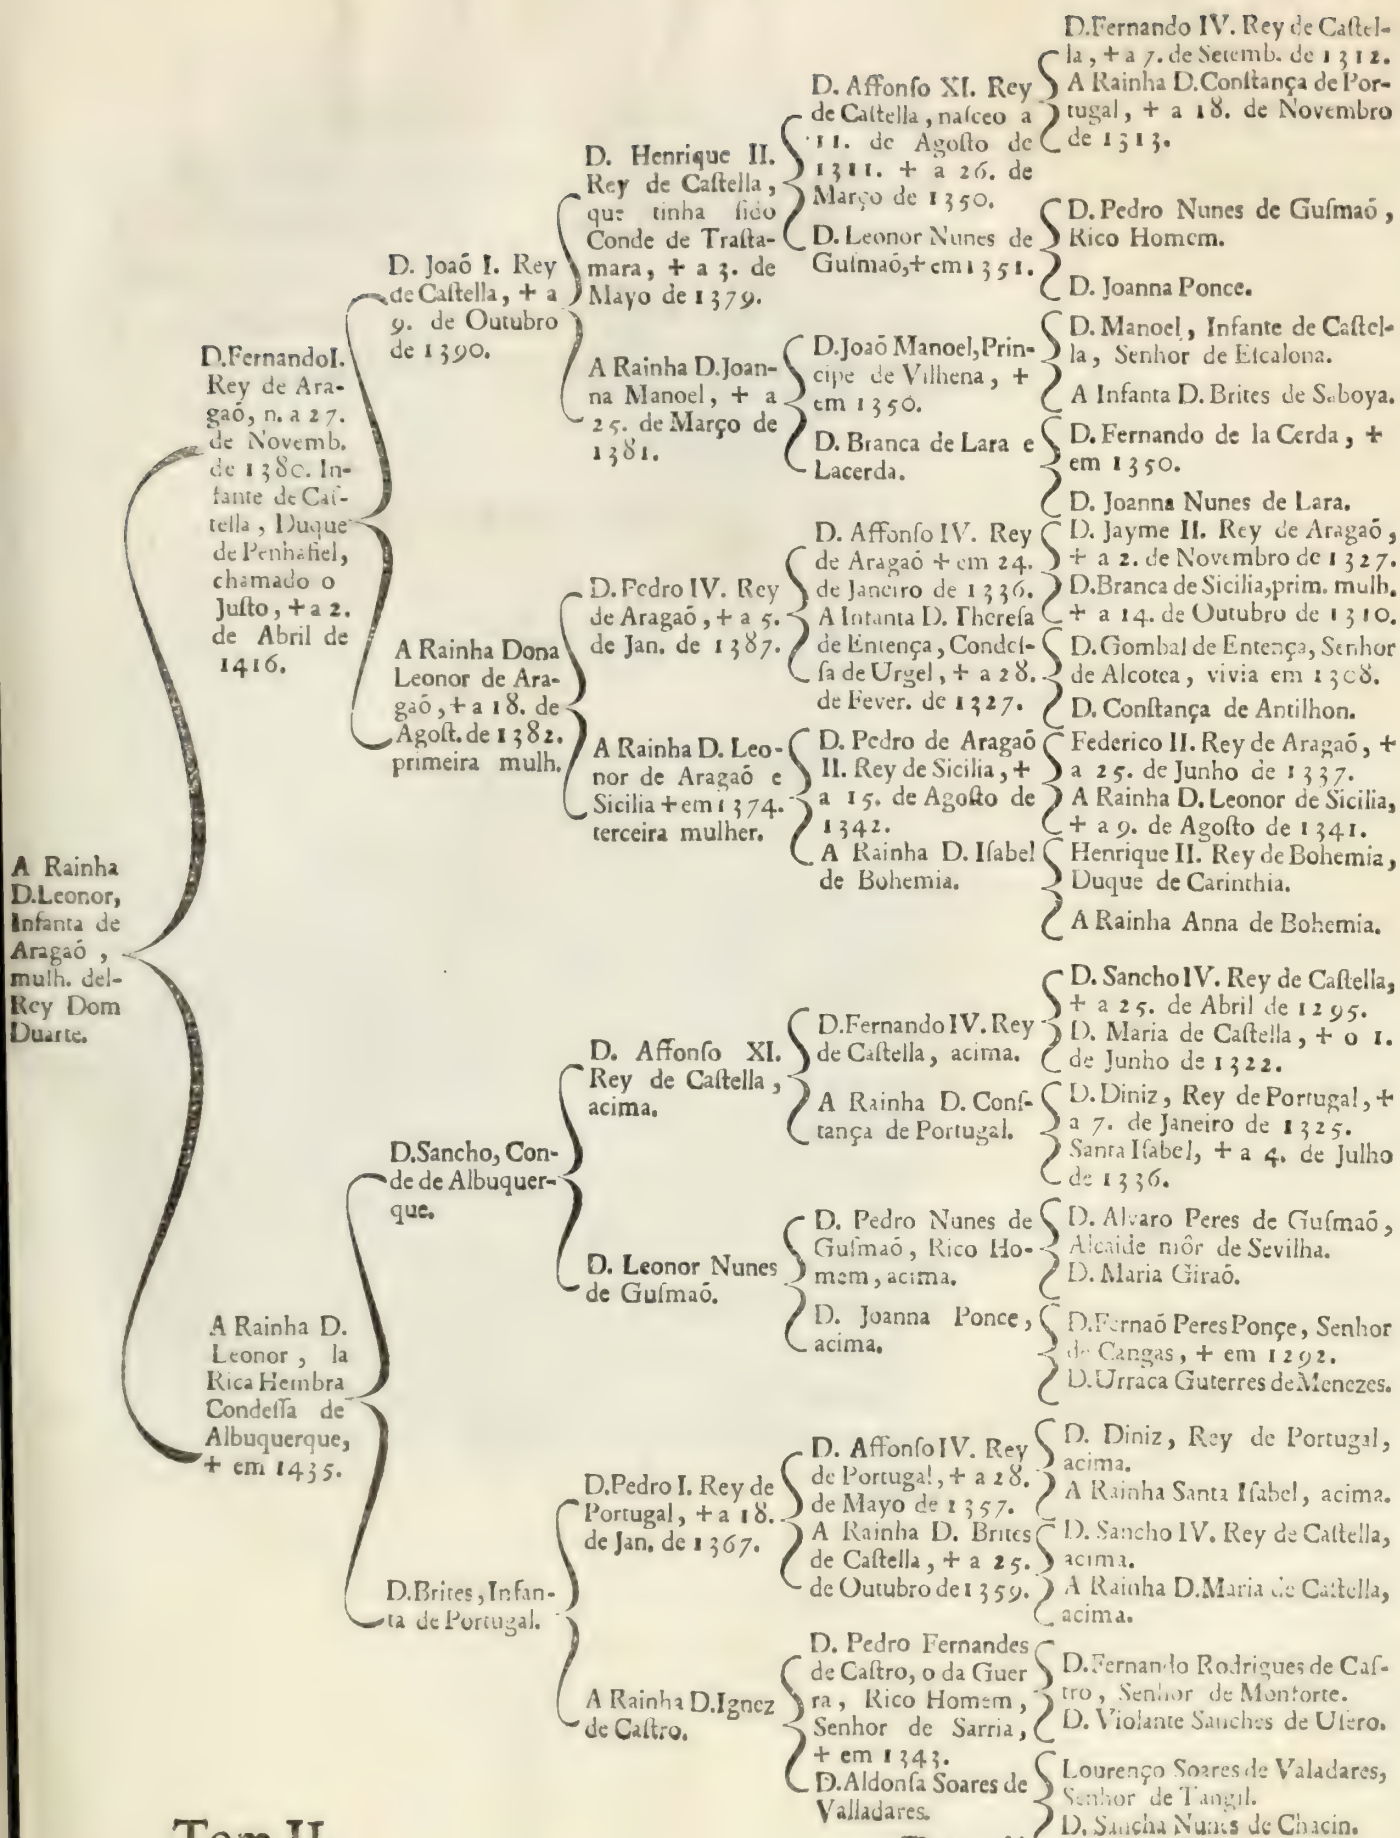 A Rainha
D.Leonor,
Infanta de
Aragaõ ,
mulh. del-
Rey Dom
Duarte.
D.Fernando I.
Rey de Ara-
gaõ, n. a 27.
de Novemb.
de 1380. In-
fante de Caſ-
tella , Duque
de Penhafiel,
chamado o
Juſto, + a 2.
de Abril de
1416.
A Rainha D.
Leonor , la
Rica Hembra
Condeſſa de
Albuquerque,
+ em 1435.
D. Joaõ I. Rey
de Caſtella, + a
9. de Outubro
de 1390.
A Rainha Dona
Leonor de Ara-
gaõ , + a 18. de
Agoſt. de 1382.
primeira mulh.
D.Sancho, Con-
de de Albuquer-
que.
D.Brites, Infan-
ta de Portugal.
D. Henrique II.
Rey de Caſtella,
que tinha ſido
Conde de Traſta-
mara, + a 3. de
Mayo de 1379.
A Rainha D.Joan-
na Manoel, + a
25. de Março de
1381.
D. Pedro IV. Rey
de Aragaõ , + a 5.
de Jan. de 1387.
A Rainha D. Leo-
nor de Aragaõ e
Sicilia + em 1374.
terceira mulher.
D. Affonſo XI.
Rey de Caſtella ,
acima.
D. Leonor Nunes
de Guſmaõ.
D.Pedro I. Rey de
Portugal, + a 18.
de Jan. de 1367.
A Rainha D.Ignez
de Caſtro.
D. Affonſo XI. Rey
de Caſtella , naſceo a
11. de Agoſto de
1311. + a 26. de
Março de 1350.
D. Leonor Nunes de
Guſmaõ,+ em 1351.
D.Joaõ Manoel,Prin-
cipe de Vilhena, +
em 1350.
D. Branca de Lara e
Lacerda.
D. Affonſo IV. Rey
de Aragaõ + em 24.
de Janeiro de 1336.
A Infanta D. Thereſa
de Entença, Condeſ-
ſa de Urgel, + a 28.
de Fever. de 1327.
D. Pedro de Aragaõ
II. Rey de Sicilia, +
a 15. de Agoſto de
1342.
A Rainha D. Iſabel
de Bohemia.
D.Fernando IV. Rey
de Caſtella, acima.
A Rainha D. Conſ-
tança de Portugal.
D. Pedro Nunes de
Guſmaõ, Rico Ho-
mem, acima.
D. Joanna Ponce,
acima.
D. Affonſo IV. Rey
de Portugal, + a 28.
de Mayo de 1357.
A Rainha D. Brites
de Caſtella, + a 25.
de Outubro de 1359.
D. Pedro Fernandes
de Caſtro, o da Guer
ra, Rico Homem,
Senhor de Sarria,
+ em 1343.
D.Aldonſa Soares de
Valladares.
D.Fernando IV. Rey de Caſtel-
la, + a 7. de Setemb. de 1312.
A Rainha D.Conſtança de Por-
tugal, + a 18. de Novembro
de 1313.
D. Pedro Nunes de Guſmaõ ,
Rico Homem.
D. Joanna Ponce.
D. Manoel, Infante de Caſtel-
la, Senhor de Eſcalona.
A Infanta D. Brites de Saboya.
D. Fernando de la Cerda, +
em 1350.
D. Joanna Nunes de Lara.
D. Jayme II. Rey de Aragaõ,
+ a 2. de Novembro de 1327.
D.Branca de Sicilia,prim. mulh.
+ a 14. de Outubro de 1310.
D. Gombal de Entença, Senhor
de Alcotea, vivia em 1308.
D. Conſtança de Antilhon.
Federico II. Rey de Aragaõ, +
a 25. de Junho de 1337.
A Rainha D. Leonor de Sicilia,
+ a 9. de Agoſto de 1341.
Henrique II. Rey de Bohemia,
Duque de Carinthia.
A Rainha Anna de Bohemia.
D. Sancho IV. Rey de Caſtella,
+ a 25. de Abril de 1295.
D. Maria de Caſtella, + o 1.
de Junho de 1322.
D. Diniz, Rey de Portugal, +
a 7. de Janeiro de 1325.
Santa Iſabel, + a 4. de Julho
de 1336.
D. Alvaro Peres de Guſmaõ,
Alcaide mór de Sevilha.
D. Maria Giraõ.
D.Fernaõ Peres Ponçe, Senhor
de Cangas, + em 1292.
D.Urraca Guterres de Menezes.
D. Diniz, Rey de Portugal,
acima.
A Rainha Santa Iſabel, acima.
D. Sancho IV. Rey de Caſtella,
acima.
A Rainha D.Maria de Caſtella,
acima.
D.Fernando Rodrigues de Caſ-
tro, Senhor de Monforte.
D. Violante Sanches de Uſero.
Lourenço Soares de Valadares,
Senhor de Tangil.
D. Sancha Nunes de Chacin.
Tom II